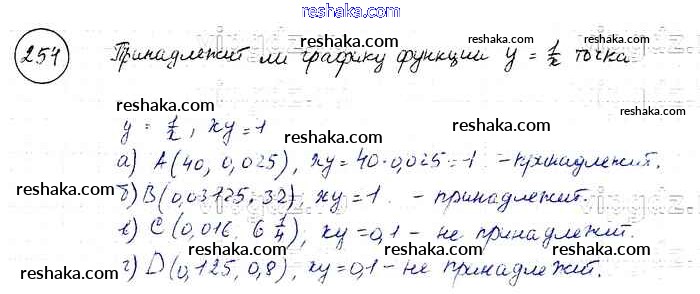 reshaka.com
254 Принадлежит ли графику функции y = 1/x точка
reshaka.com
y = 1/x, xy = 1
reshaka.com reshaka.com reshaka.com
а) A(40, 0,025), xy = 40·0,025 = 1 - принадлежит.
reshaka.com reshaka.com reshaka.com
б) B(0,03125, 32), xy = 1. - принадлежит.
reshaka.com reshaka.com reshaka.com
в) C(0,016, 6 1/4), xy = 0,1 - не принадлежит.
reshaka.com reshaka.com reshaka.com
г) D(0,125, 0,8), xy = 0,1 - не принадлежит.
reshaka.com